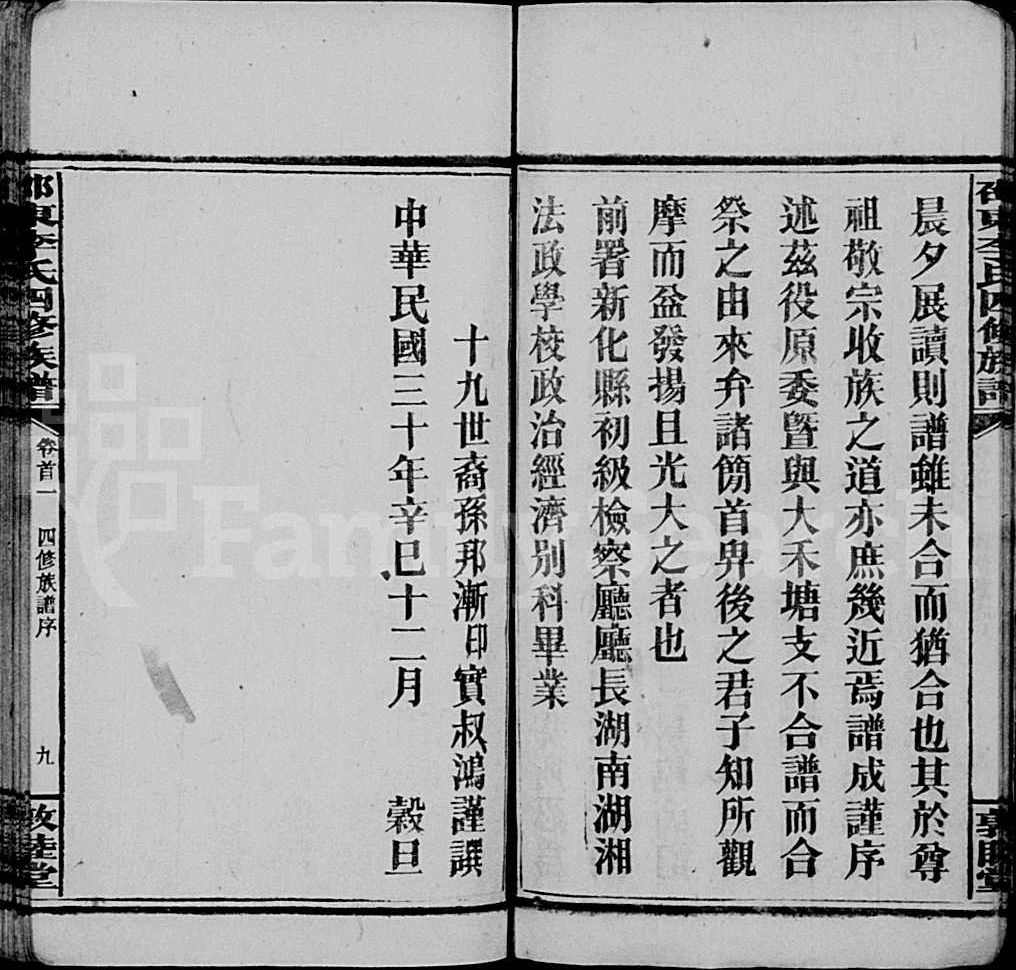 邵東李氏四修族譜
敦睦堂
晨夕展讀則譜雖未合而猶合也其於尊
祖敬宗收族之道亦庶幾近焉譜成謹序
述茲役原委暨與大禾塘支不合譜而合
祭之由來弁諸簡首畀後之君子知所觀
摩而益發揚且光大之者也
前署新化縣初級檢察廳廳長湖南湖湘
法政學校政治經濟別科畢業
十九世裔孫邦漸印實叔鴻謹譔
中華民國三十年辛巳十二月 穀旦
邵東李氏四修族譜
卷首一 四修族譜序 九
敦睦堂
FamilySearch